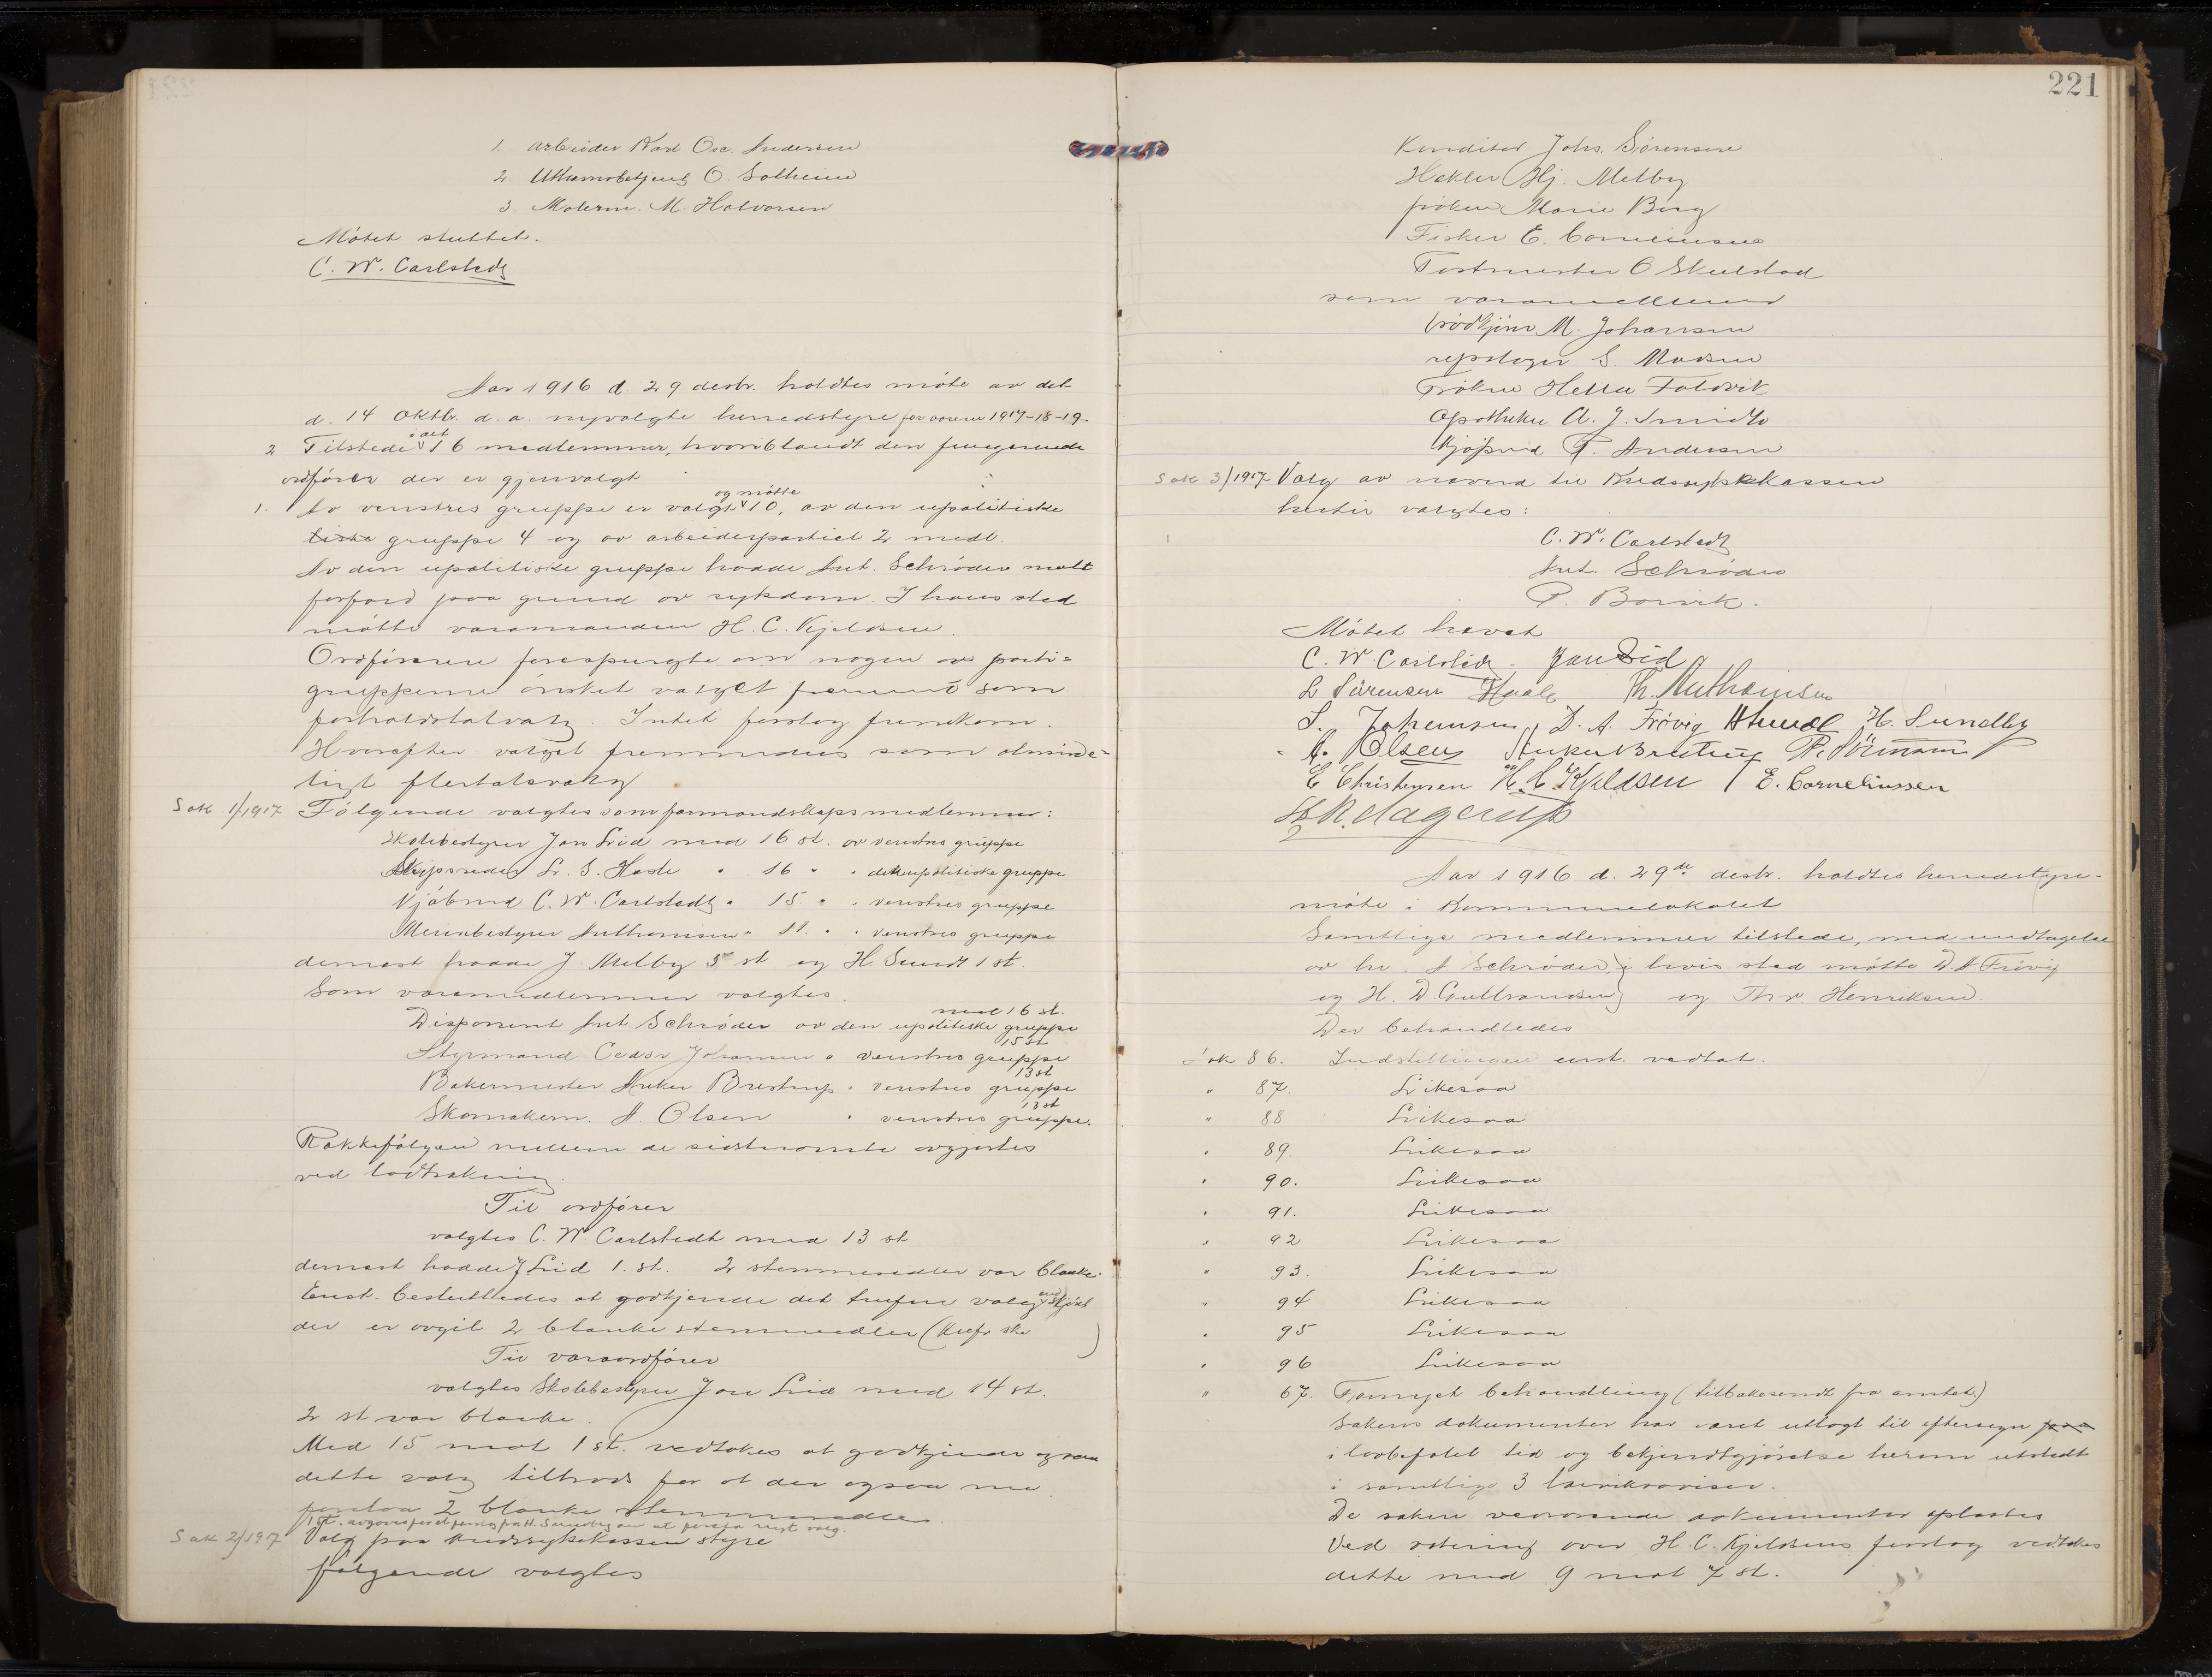 1. arbeider Karl Osc. Andersen
2. Uthavnsbetjent O. Solheim
3 Malerm. M. Halvorsen
Møtet sluttet.
C. W. Carlstedt
Aar 1916 d. 29 desbr. holdtes møte av det
d. 14 oktbr. d. a. nyvalgte herredstyre for aarene 1917-18-19.
2 Tilstede i alt 16 medlemmer, hvoriblandt den fungerende
ordfører der er gjenvalgt
1. Av venstres gruppe er valgt og møtte 10, av den upolitiske
tiske gruppe 4 og av arbeiderpartiet 2 medl.
Av den upolitiske gruppe hadde Ant. Schrøder meldt
forfald paa grund av sykdom. I hans sted
møtte varamanden H. C. Kjeldsen.
Ordføreren forespurgte om nogen av parti=
grupperne ønsket valget fremmet som
forholdstalvalg. Intet forslag fremkom.
Hvorefter valget fremmedes som alminde=
ligt flertalsvalg
Sak 1/1917 Følgende valgtes som formandskapsmedlemmer:
Skolebestyrer Jon Lid med 16 st. av venstres gruppe
Skipsreder L. S. Hasle " 16 " " den upolitiske gruppe
Kjøbmd C. W. Carlstedt " 15 " " venstres gruppe
Meieribestyrer Anthonisen " 11. " " venstres gruppe
dernæst hadde J. Melby 5 st og H. Sundt 1 st.
Som varamedlemmer valgtes.
Disponent Ant Schrøder av den upolitiske gruppe med 16 st.
Styrmand Johansen " venstres gruppe 15 st
Bakermester Anker Brestrup " venstres gruppe 13 st
Skomakerm. A. Olsen " venstres gruppe. 13 st
Rækkefølgen mellem de sidstnævnte avgjortes
ved lodtrækning.
Til ordfører
valgtes C. W. Carlstedt med 13 st
dernæst hadde J Lid 1. st. 2 stemmesedler var blanke.
Enst. besluttedes at godkjende det trufne valg end skjønt
der er avgit 2 blanke stemmesedler
Til varaordfører
valgtes Skolebestyrer Jon Lid med 14 st.
2 st var blanke.
Med 15 mot 1 st. vedtokes at godkjende ogsaa
dette valg tiltrods for at der ogsaa nu
forelaa 2 blanke stemmesedler.
1 st. avgaves for et forslag fra H. Sundby om at foreta nyt valg.
Sak 2/1917 Valg paa Kredssykekassens styre
følgende valgtes
221
Konditor Johs. Sørensen
Hekler Hj. Melby
frøken Marie Berg
Fisker E. Corneliussen
Postmester O Skulstad
som varamedlemmer
M. Johansen
repslager S. Madsen
Frøken Helea Foldvik
Apotheker A. J. Smidt
Kjøpmd P. Andersen
Sak 3/1917 Valg av nævnd til Kredssykekassen
hertil valgtes:
C. W. Carlstedt
Ant. Schrøder
P. Borvik.
Møtet hævet
C. W. Carlstedt. Jon Lid
L Sørensen Hasle Th. Anthonisen
S. Johansen D. A. Frøvig HSundt H. Sundby
A. Olsen Anker Brestrup
E Christensen H. C. Kjeldsen E. Corneliussen
Hagerup
Aar 1916 d. 29de desbr. holdtes herredstyre-
møte i Kommunelokalet
Samtlige medlemmer tilstede, med undtagelse
av hr. A Schrøder i hvis sted møtte D. A Frøvig
og H. D Gulbrandsen og Thv. Henriksen.
Der behandledes
Sak 86. Indstillingen enst. vedtat.
" 87. Likesaa
" 88 Likesaa
" 89. Likesaa
" 90. Likesaa
" 91. Likesaa
" 92 Likesaa
" 93. Likesaa
" 94 Likesaa
" 95 Likesaa
" 96 Likesaa
" 67. Fornyet behandling (tilbakesendt fra amtet.)
Sakens dokumenter har været utlagt til eftersyn paa
i lovbefalet tid og bekjendtgjørelse herom utstedt
i samtlige 3 Larviksaviser.
De saken vedrørende dokumenter oplæstes
Ved votering over H. C. Kjeldsens forslag vedtokes
dette med 9 mot 7 st.